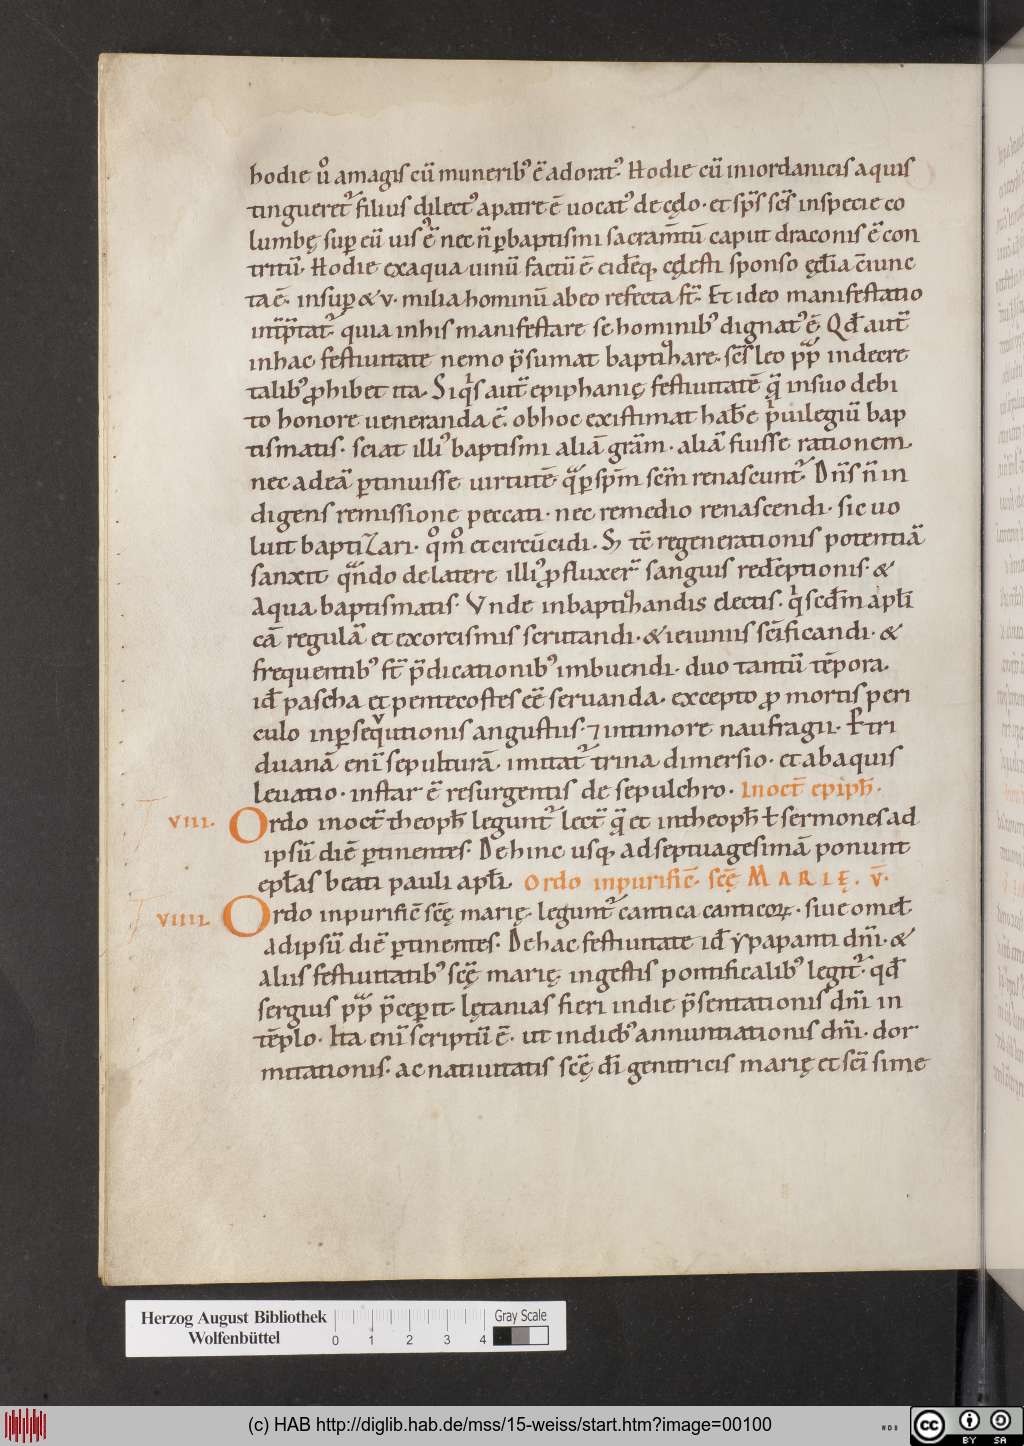 hodie ū͛ amagis cū muneribꝰ ē adoratꝰ. Hodie cū iniordanicis aquis
tingueret᷒ filius dilectꝰ apatre ē uocatꝰ de cęlo · et sp̄s sc̄s inspecie co
lumbę suꝑ eū uisꝰ ē nec n̄ ꝑbaptismi sacram̄tū caput draconis ē con
tritū. Hodie exaqua uinū factū ē eidēq; cęlesti sponso ęcl̄ia ē iunc
ta ē. insuꝑ & v. milia hominū abeo refecta st̄. Et ideo manifestatio
int̄p̄tat᷒. quia inhis manifestare se hominibꝰ dignatꝰ ē. Qd̄ aut̄
inhac festiuitate nemo p̄sumat baptizare. sc̄s leo pp̄ indecre
talibꝰ ꝓhibet ita. Siqis aut̄ epiphanię festiuitatē q̄ insuo debi
to honore ueneranda ē. obhoc existimat hab̄e priuilegiū bap
tismatis. sciat illiꝰ baptismi aliā grām. aliā fuisse rationem.
nec adeā ꝑtinuisse uirtutē. q̄ ꝑ sp̄m sc̄m renascunt᷒. Dn̄s n̄ in
digens remissione peccati. nec remedio renascendi. sic uo
luit baptizari. qomo et circūcidi. S; tē regenerationis potentiā
sanxit qn̄do delatere illiꝰ ꝓfluxer̄ sanguis redēptionis. &
Aqua baptismatis. Vnde inbaptizandis electis. qi scd̄m apl̄i
cā regulā et exorcismis scrutandi. & ieiuniis sc̄ificandi. &
frequentibꝰ st̄ p̄dicationibꝰ imbuendi. duo tantū tēpora.
id̄ pascha et pentecostes eē seruanda. excepto ꝓ mortis peri
culo inꝑsequtionis angustiis. ⁊ intimore naufragii. Et tri
duanā enī sepulturā. imitat᷒ trina dimersio. et abaquis
leuatio. instar ē resurgentis de sepulchro. Inoct̄ epiph̄.
VIII. Ordo inoct̄ theoph̄ legunt᷒ lect̄ q̄ et intheoph̄ ł sermones ad
ipsū diē ꝑtinentes. Dehinc usq; adseptuagesimā ponunt
epl̄as beati pauli apl̄i. Ordo inpurific̄. sc̄ę MARIĘ. v̄.
VIIII. Ordo inpurific̄ sc̄ę marię. legunt᷒ cantica canticoꝝ. siue omel̄
adipsū diē ꝑtinentes. Dehac festiuitate id̄ ẏpapanti dn̄i. &
aliis festiuitatibꝰ sc̄ę marię. ingestis pontificalibꝰ legit᷒. qd̄
sergius pp̄ p̄cepit. lętanias fieri indie p̄sentationis dn̄i in
tēplo. Ita enī scriptū ē. ut indiebꝰ annuntiationis dn̄i. dor
mitationis. ac natiuitatis sc̄ę dī genitricis marię et sc̄i sime
Herzog August Bibliothek
Wolfenbüttel
0 1 2 3 4
Gray Scale
(c) HAB http://diglib.hab.de/mss/15-weiss/start.htm?image=00100
WDB
CC BY SA